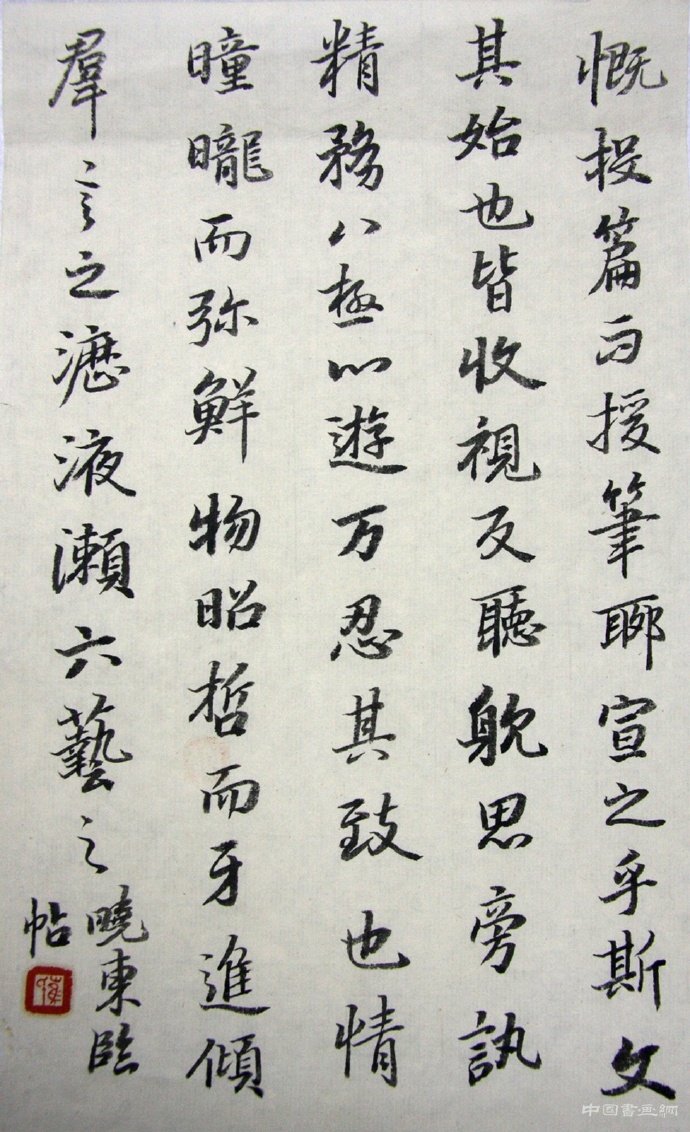 慨投篇而授筆聊宣之乎斯文
其始也皆收視反聽躭思旁訊
精務八極心遊万忍其致也情
曈曨而弥鮮物昭哲而牙進傾
羣言之瀝液瀬六藝之
曉東臨
帖
中国書画網